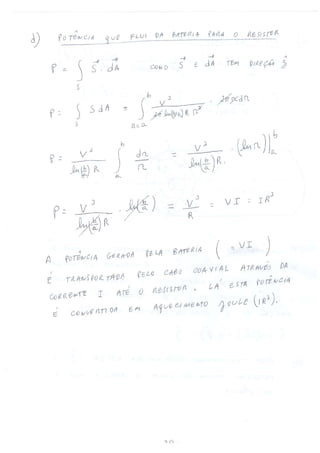 d) POTÊNCIA QUE FLUI DA BATERIA PARA O RESISTOR
P = ∫_S S⃗ · dA⃗ COMO S⃗ E dA⃗ TEM DIREÇÃO ẑ
P = ∫_S S dA = ∫_{r=a}^{b} V² / (2π ln(b/a) R r²) · 2π r dr
P = V² / (ln(b/a) R) ∫_a^b dr / r = V² / (ln(b/a) R) · (ln r)|_a^b
P = V² / (ln(b/a) R) · ln(b/a) = V² / R = VI = IR²
A POTÊNCIA GERADA PELA BATERIA ( = VI )
É TRANSPORTADA PELO CABO COAXIAL ATRAVÉS DA
CORRENTE I ATÉ O RESISTOR. LÁ ESTA POTÊNCIA
É CONVERTIDA EM AQUECIMENTO JOULE (IR²).